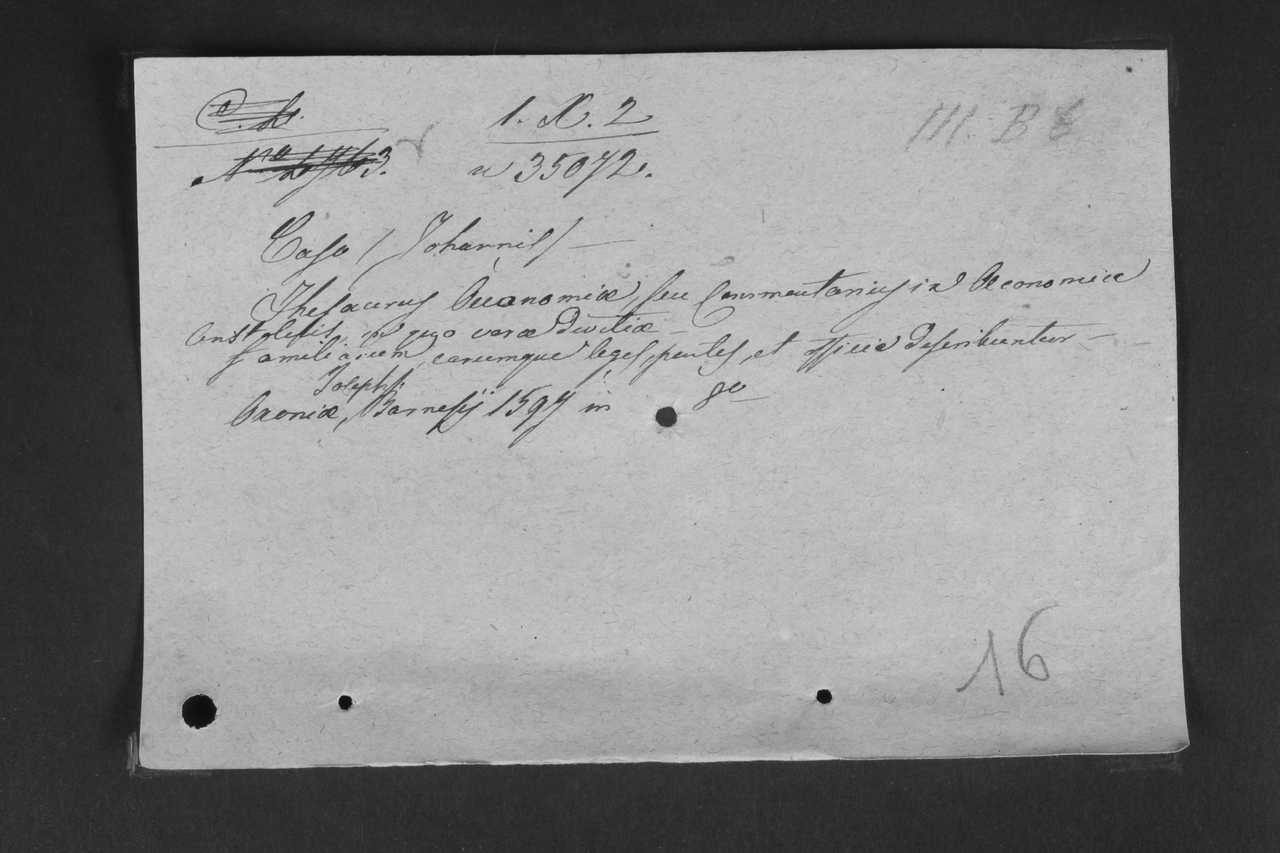 1. X. 2
III. B 8
n 35072.
Caso (Johannis) —
Thesaurus Oeconomiæ, seu Commentarius in Oeconomica
Aristotelis, in quo veræ divitiæ —
familiarum, earumque leges, partes, et officia describuntur —
Josephi
Oxoniæ, Barnesij 1597 in 8º
16